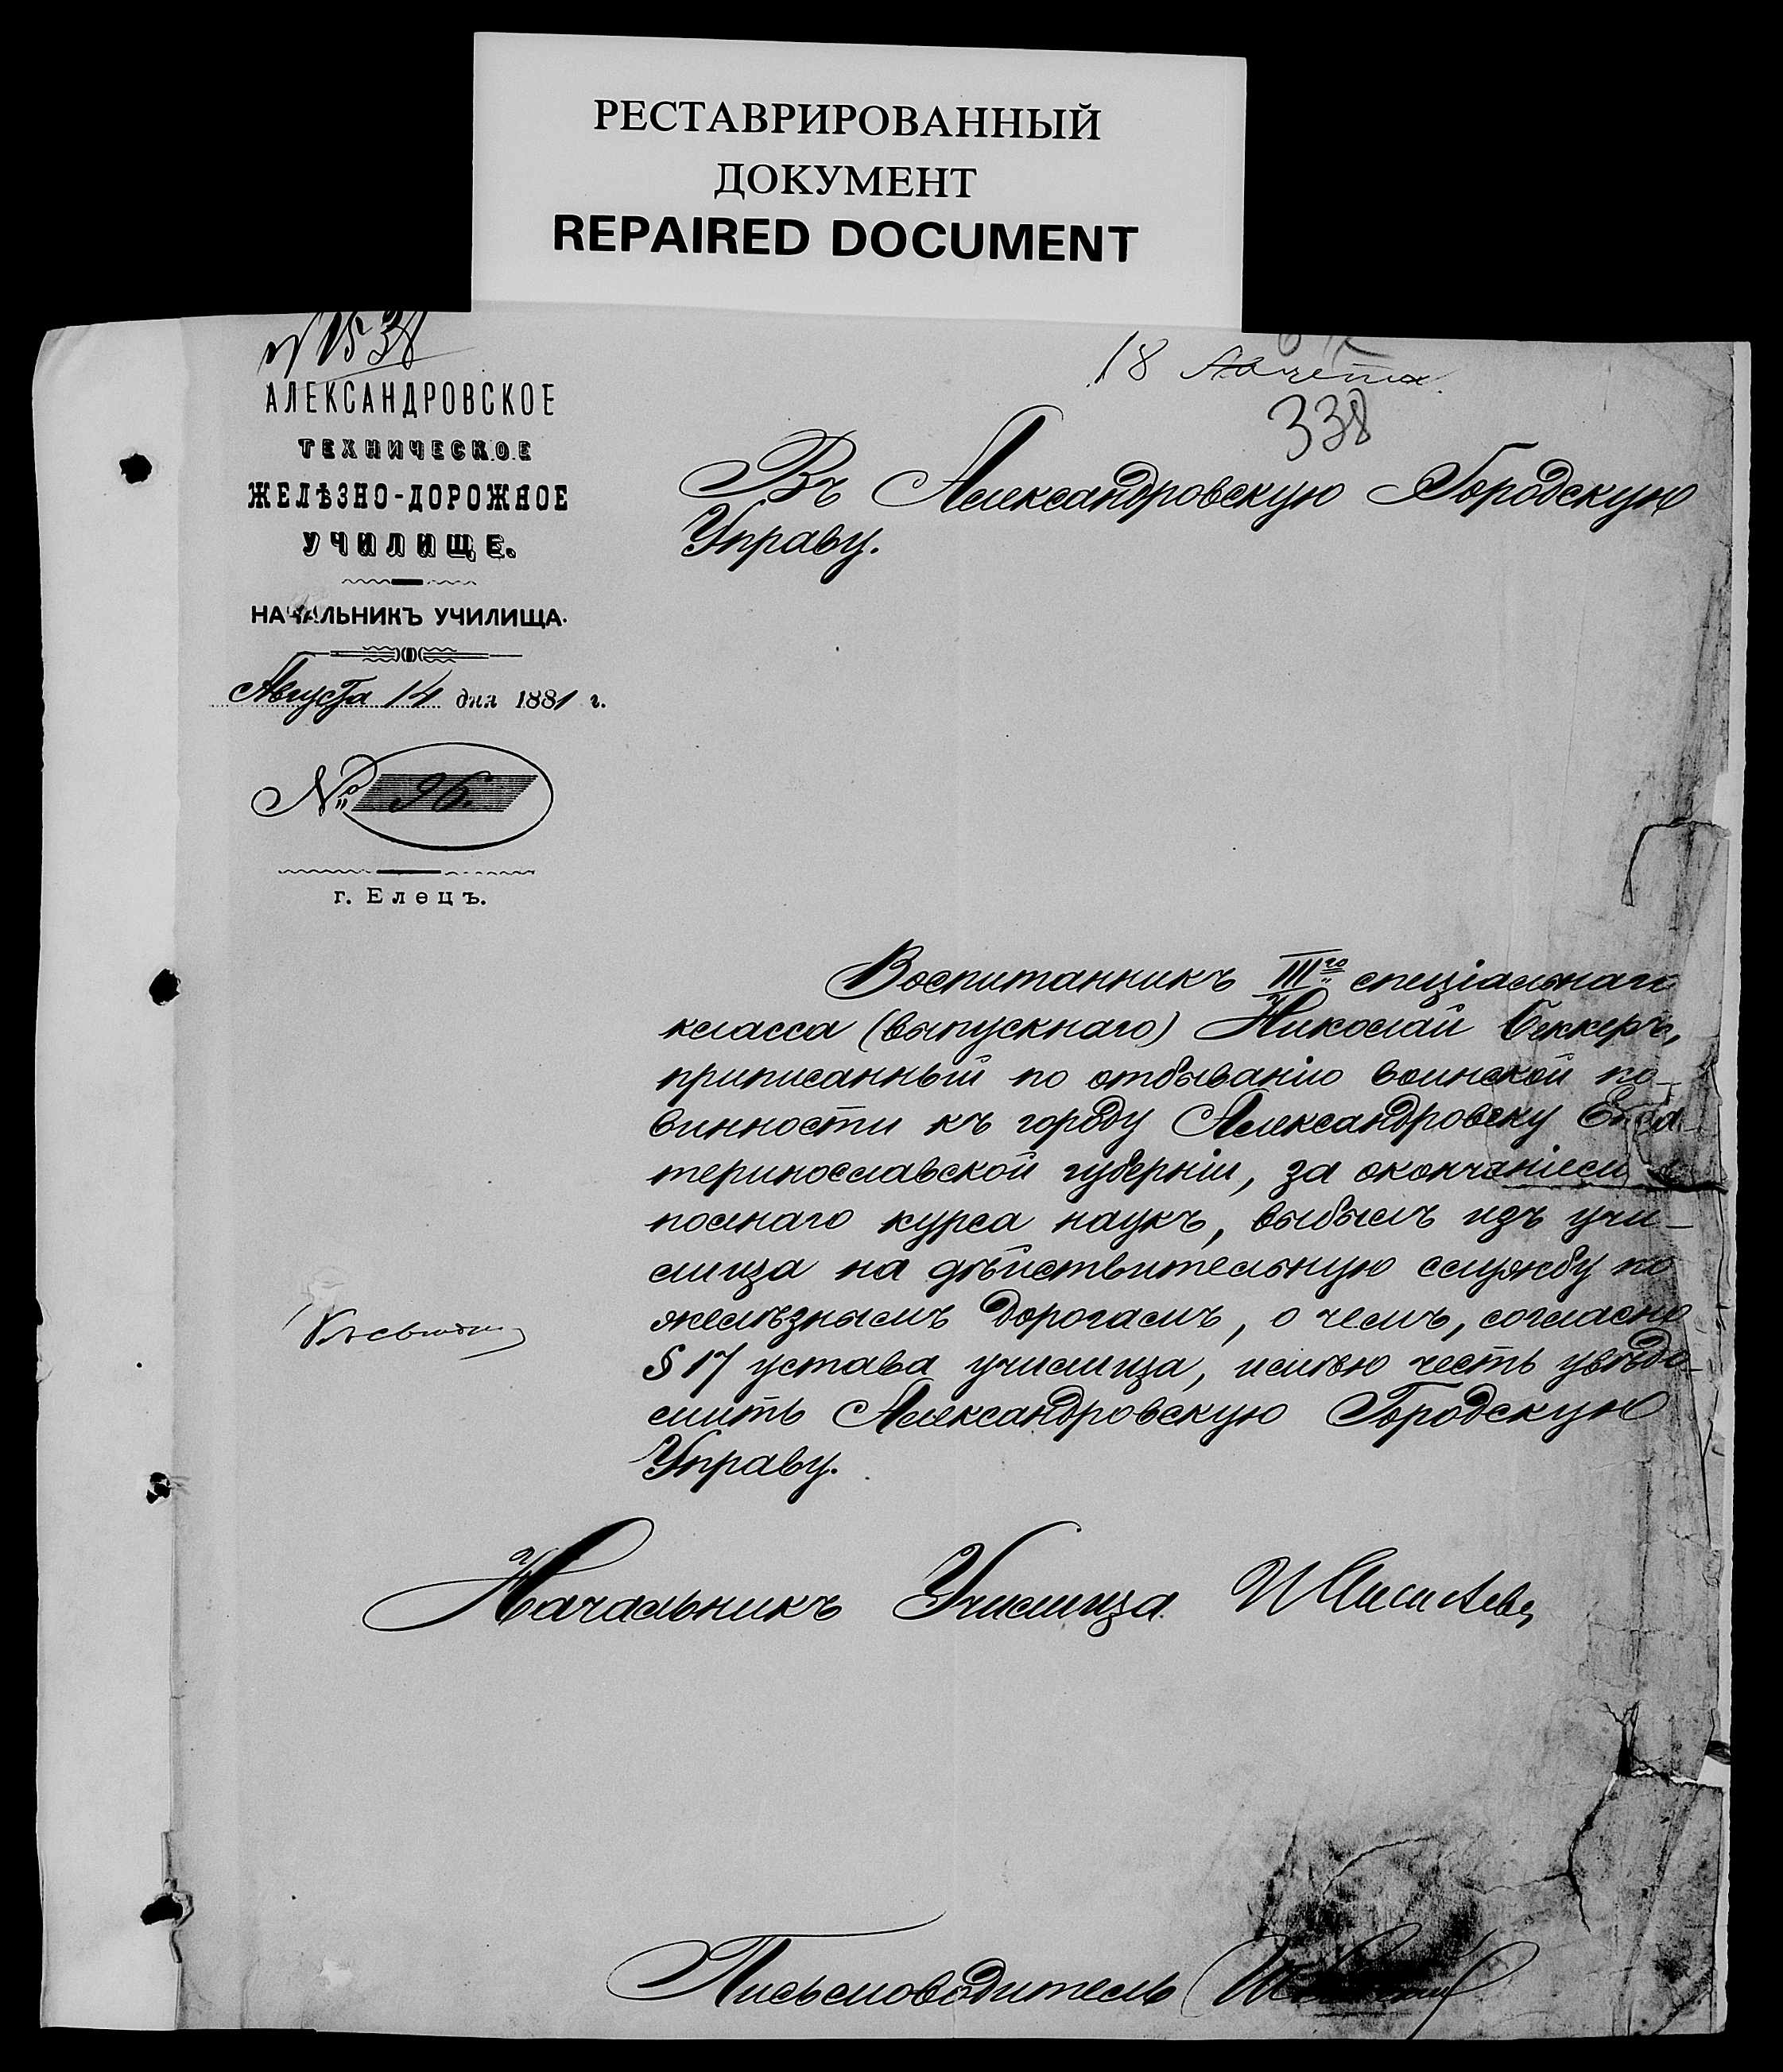 РЕСТАВРИРОВАННЫЙ
ДОКУМЕНТ
REPAIRED DOCUMENT
№ 1538
18 Августа
338
АЛЕКСАНДРОВСКОЕ
ТЕХНИЧЕСКОЕ
ЖЕЛѢЗНО-ДОРОЖНОЕ
УЧИЛИЩЕ.
НАЧАЛЬНИКЪ УЧИЛИЩА.
Августа 14 дня 1881 г.
№ 96.
г. Елецъ.
Въ Александровскую Городскую
Управу.
Воспитанникъ III го спеціальнаго
класса (выпускнаго) Николай Беккеръ,
приписанный по отбыванію воинской по-
винности къ городу Александровску Ека-
теринославской губерніи, за окончаніемъ
полнаго курса наукъ, выбылъ изъ учи-
лища на дѣйствительную службу по
желѣзнымъ дорогамъ, о чемъ, согласно
§ 17 устава училища, имѣю честь увѣдо-
мить Александровскую Городскую
Управу.
Начальникъ Училища
Письмоводитель